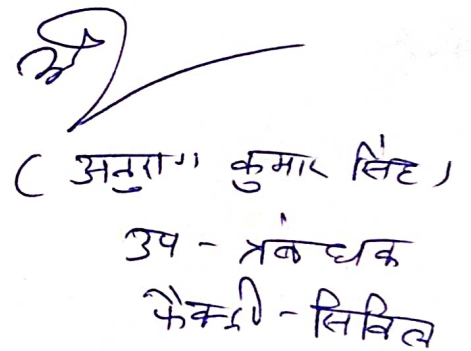 ( अनुराग कुमार सिंह )
उप - प्रबंधक
फैक्ट्री - सिविल